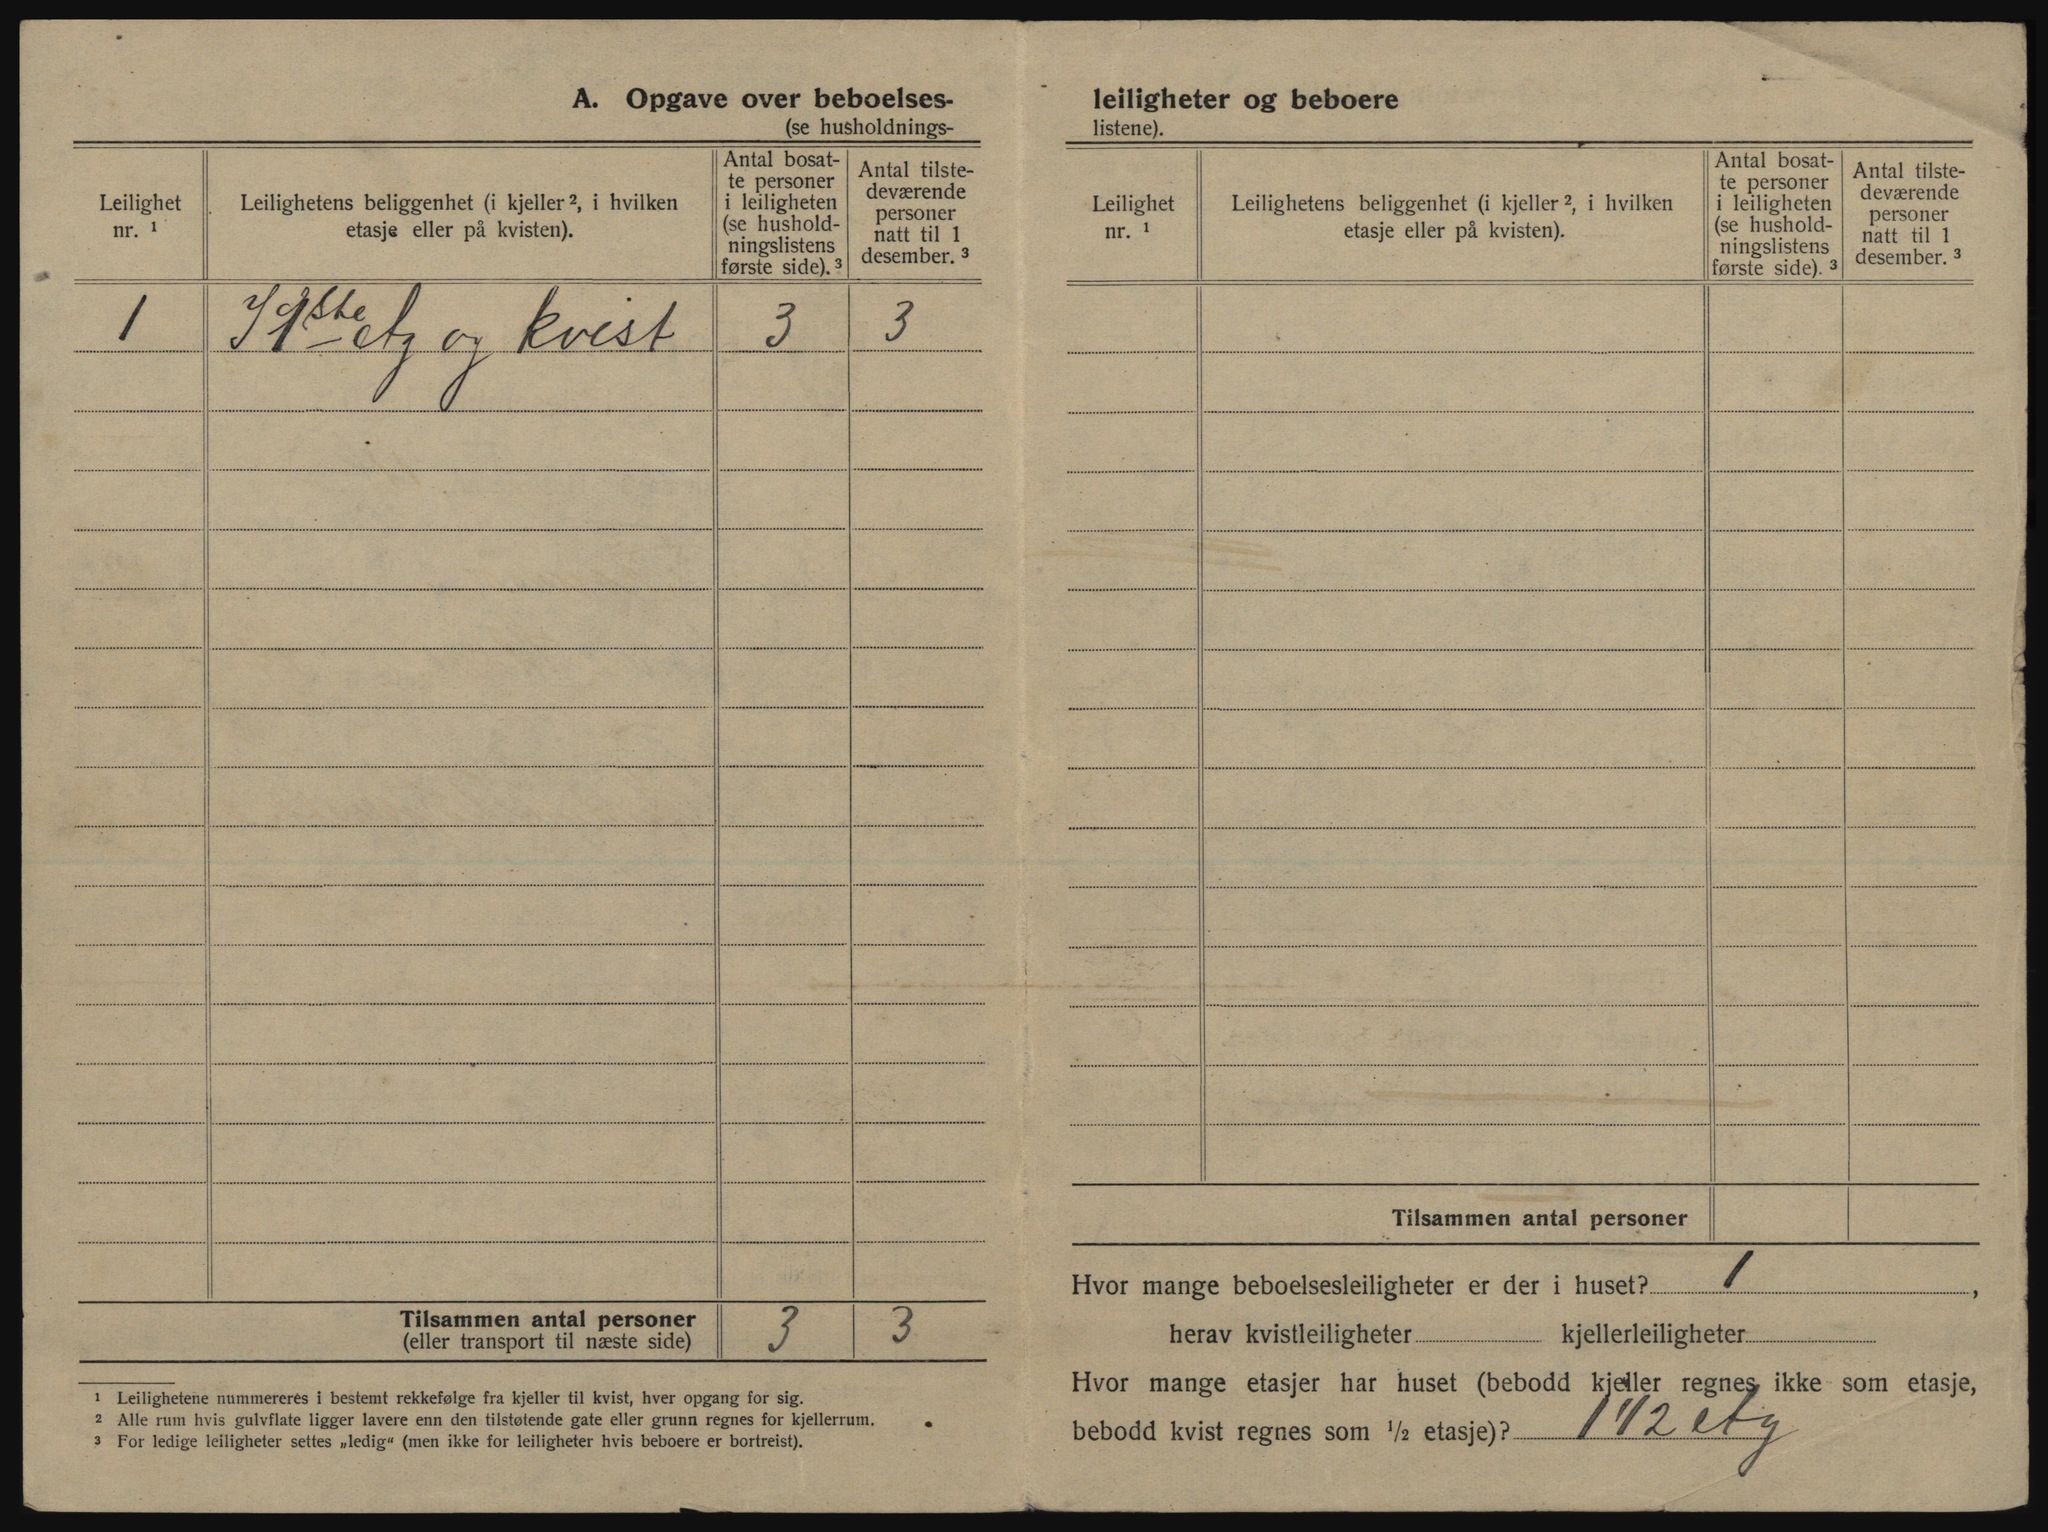 A. Opgave over beboelses-
(se husholdnings-
Leilighet
nr. ¹
Leilighetens beliggenhet (i kjeller ², i hvilken
etasje eller på kvisten).
Antal bosat-
te personer
i leiligheten
(se hushold-
ningslistens
første side). ³
Antal tilste-
deværende
personer
natt til 1
desember. ³
1 I 1ste etg og kvist 3 3
Tilsammen antal personer 3 3
(eller transport til næste side)
¹ Leilighetene nummereres i bestemt rekkefølge fra kjeller til kvist, hver opgang for sig.
² Alle rum hvis gulvflate ligger lavere enn den tilstøtende gate eller grunn regnes for kjellerrum.
³ For ledige leiligheter settes „ledig“ (men ikke for leiligheter hvis beboere er bortreist).
leiligheter og beboere
listene).
Leilighet
nr. ¹
Leilighetens beliggenhet (i kjeller ², i hvilken
etasje eller på kvisten).
Antal bosat-
te personer
i leiligheten
(se hushold-
ningslistens
første side). ³
Antal tilste-
deværende
personer
natt til 1
desember. ³
Tilsammen antal personer
Hvor mange beboelsesleiligheter er der i huset? 1,
herav kvistleiligheter kjellerleiligheter
Hvor mange etasjer har huset (bebodd kjeller regnes ikke som etasje,
bebodd kvist regnes som ½ etasje)? 1 1/2 etg